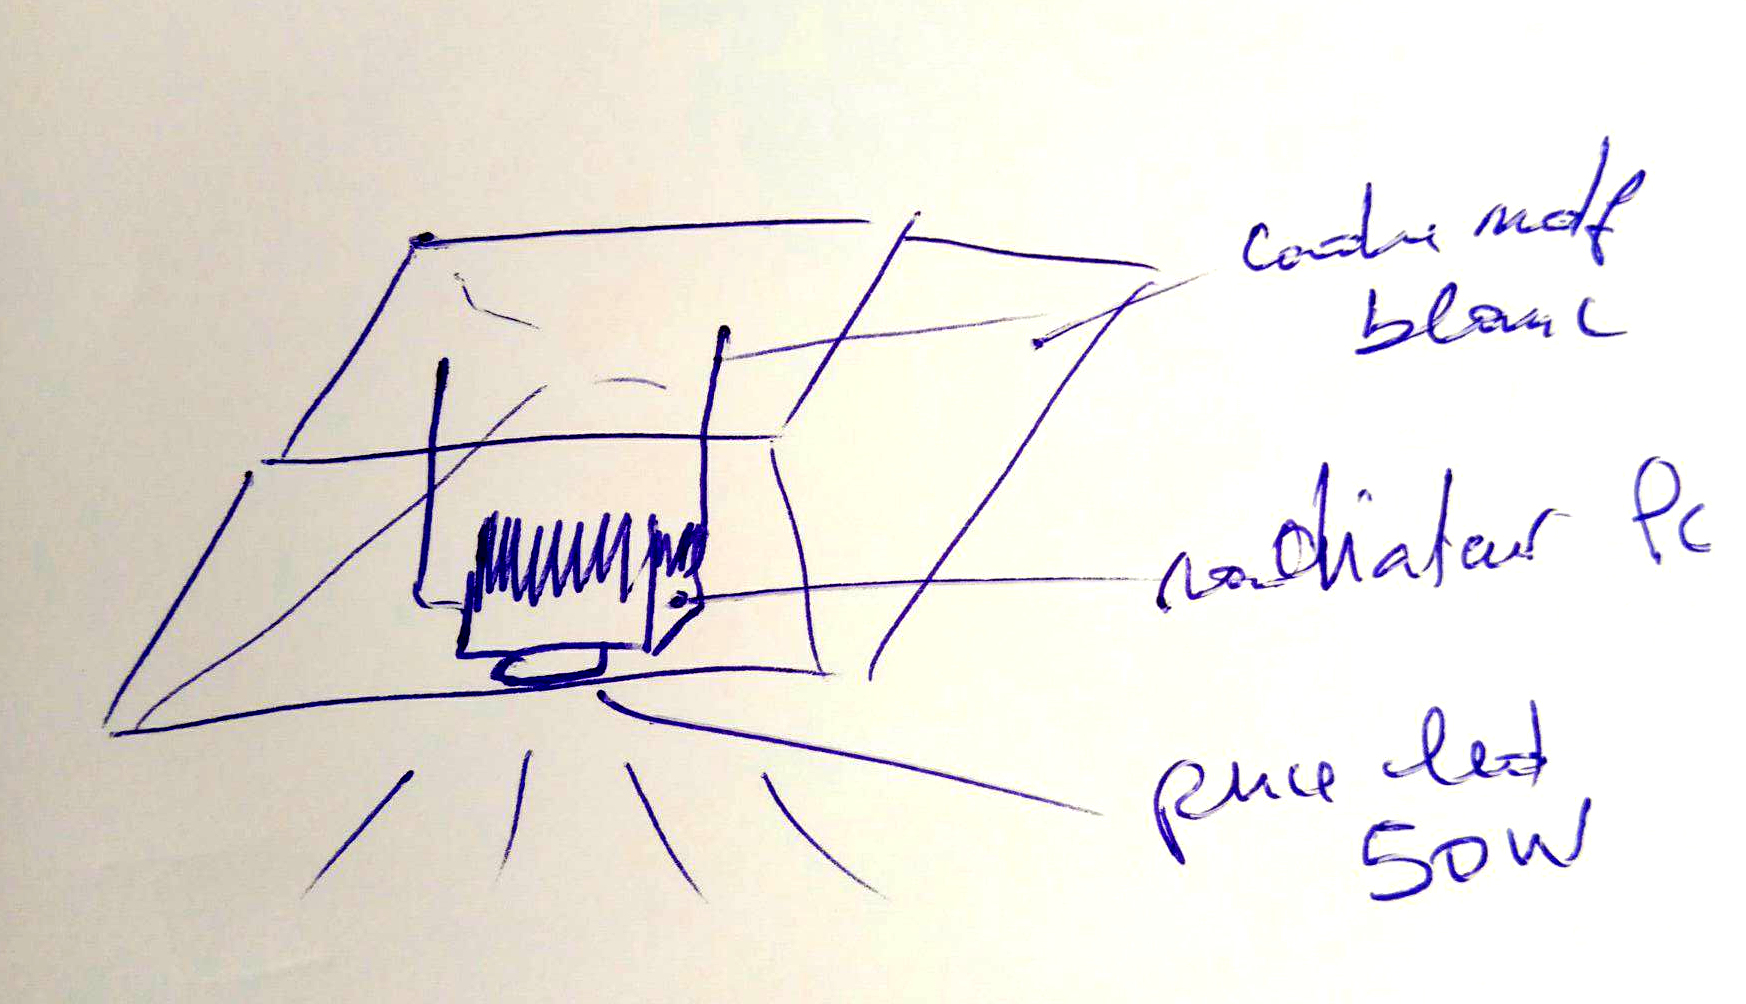 cadre mdf
blanc
radiateur Pc
puce led
50W